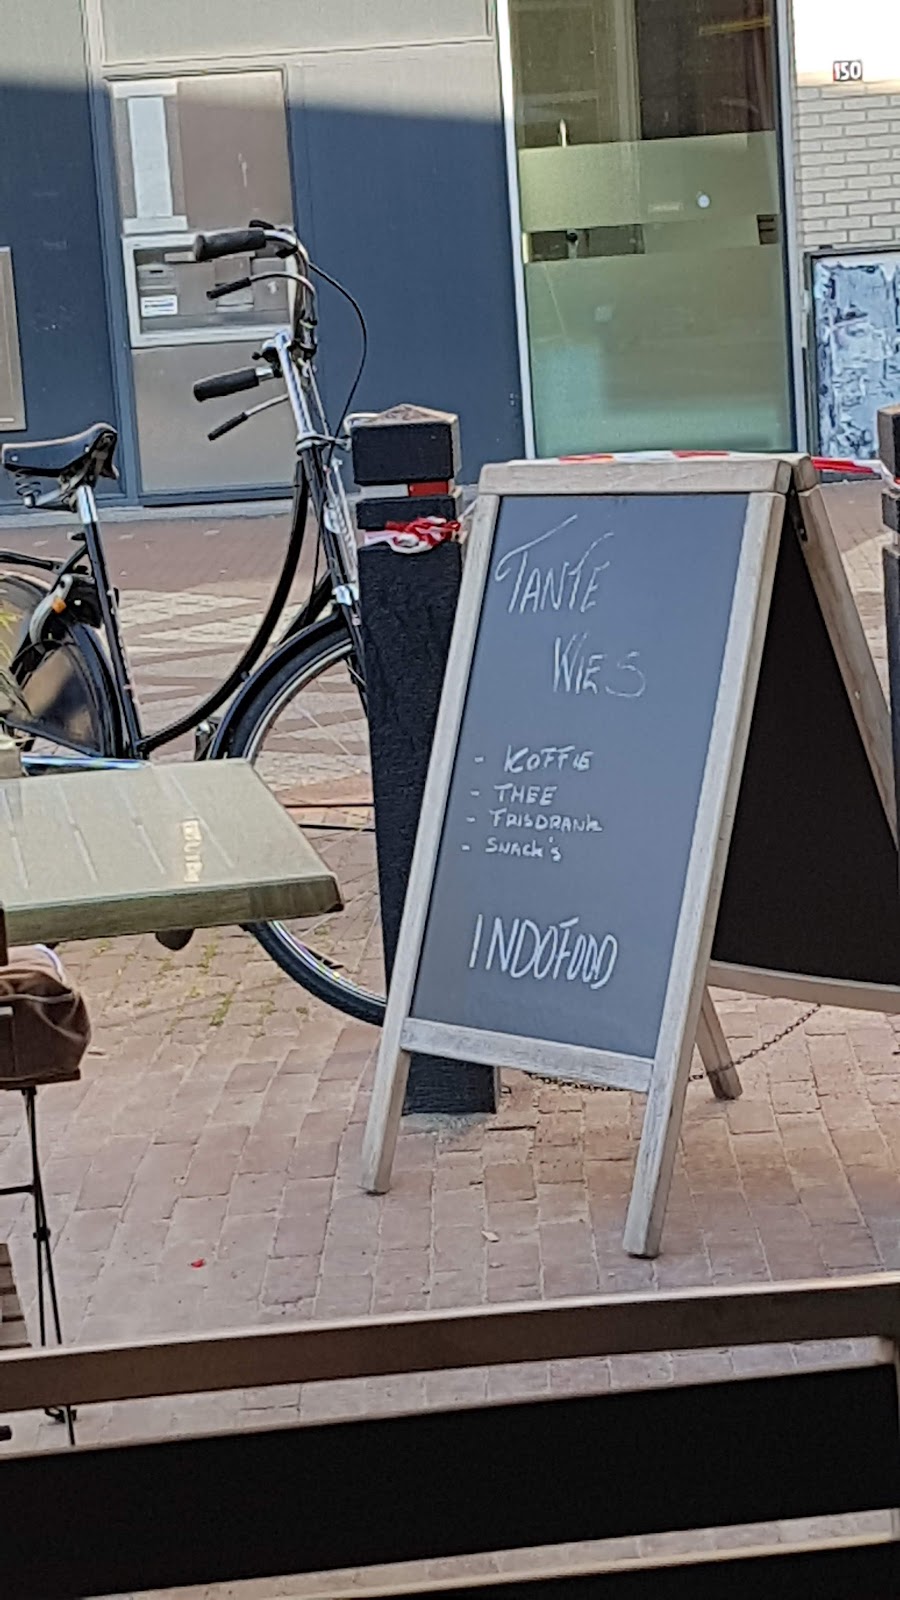 150
TANTE
WIES
- KOFFIE
- THEE
- FRISDRANK
- SNACK'S
INDOFOOD